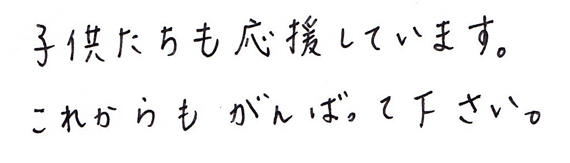 子供たちも応援しています。
これからもがんばって下さい。